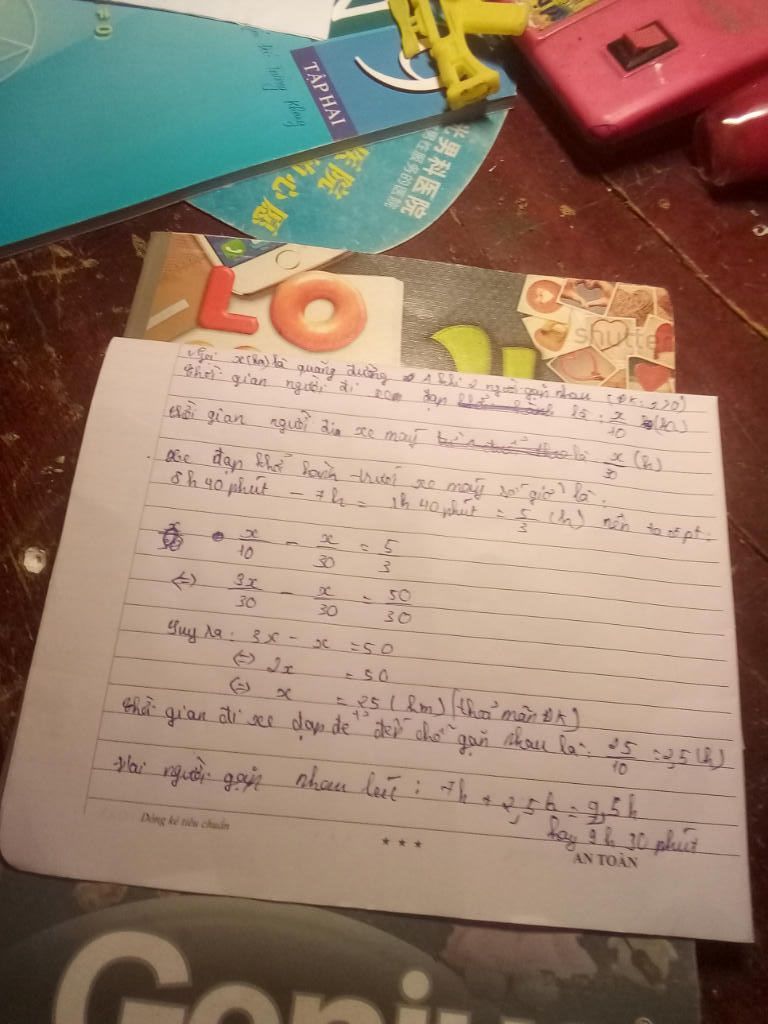 TẬP HAI
9
北男科医院
LO
shutter
Gọi x(km) là quãng đường khi 2 người gặp nhau (ĐK: x>0)
thời gian người đi xe đạp là: x/10 (h)
thời gian người đi xe máy là x/30 (h)
Xe đạp khởi hành trước xe máy số giờ là:
8h 40 phút - 7h = 1h 40 phút = 5/3 (h) nên ta có pt:
x/10 - x/30 = 5/3
(=) 3x/30 - x/30 = 50/30
Suy ra: 3x - x = 50
(=) 2x = 50
(=) x = 25 (km) (thoả mãn ĐK)
thời gian đi xe đạp để đến chỗ gặp nhau là: 25/10 = 2,5 (h)
Hai người gặp nhau lúc: 7h + 2,5h = 9,5h
hay 9h 30 phút
Dòng kẻ tiêu chuẩn
* * *
AN TOÀN